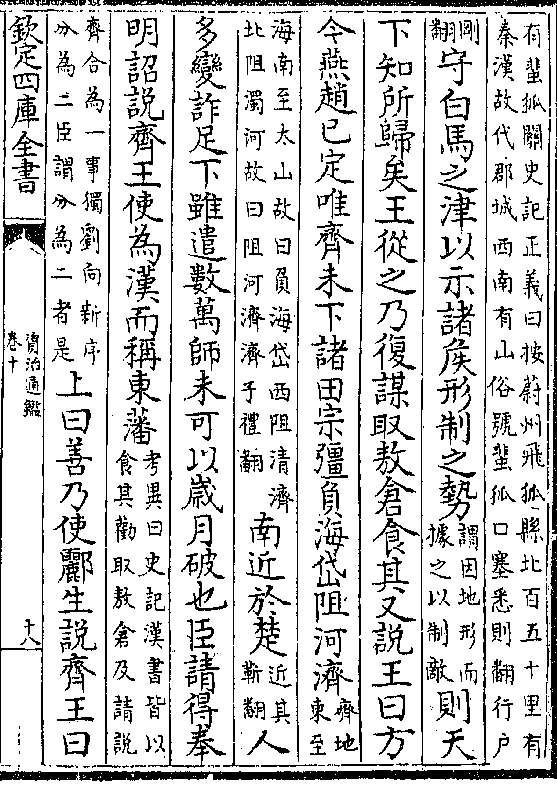 有蜚狐關史記正義曰按蔚州飛狐縣北百五十里有
秦漢故代郡城西南有山俗號蜚狐口塞悉則翻行户
剛翻守白馬之津以示諸侯形制之勢謂因地形而據之以制敵則天
下知所歸矣王從之乃復謀取敖倉食其又說王曰方
今燕趙已定唯齊未下諸田宗彊負海岱阻河濟齊地東至
海南至太山故曰負海岱西阻清濟
北阻濁河故曰阻河濟濟子禮翻南近於楚近其靳翻人
多變詐足下雖遣數萬師未可以歳月破也臣請得奉
明詔說齊王使為漢而稱東藩考異曰史記漢書皆以食其勸取敖倉及請說
齊合為一事獨劉向新序
分為二臣謂分為二者是上曰善乃使酈生說齊王曰
欽定四庫全書
資治通鑑
卷十
十八